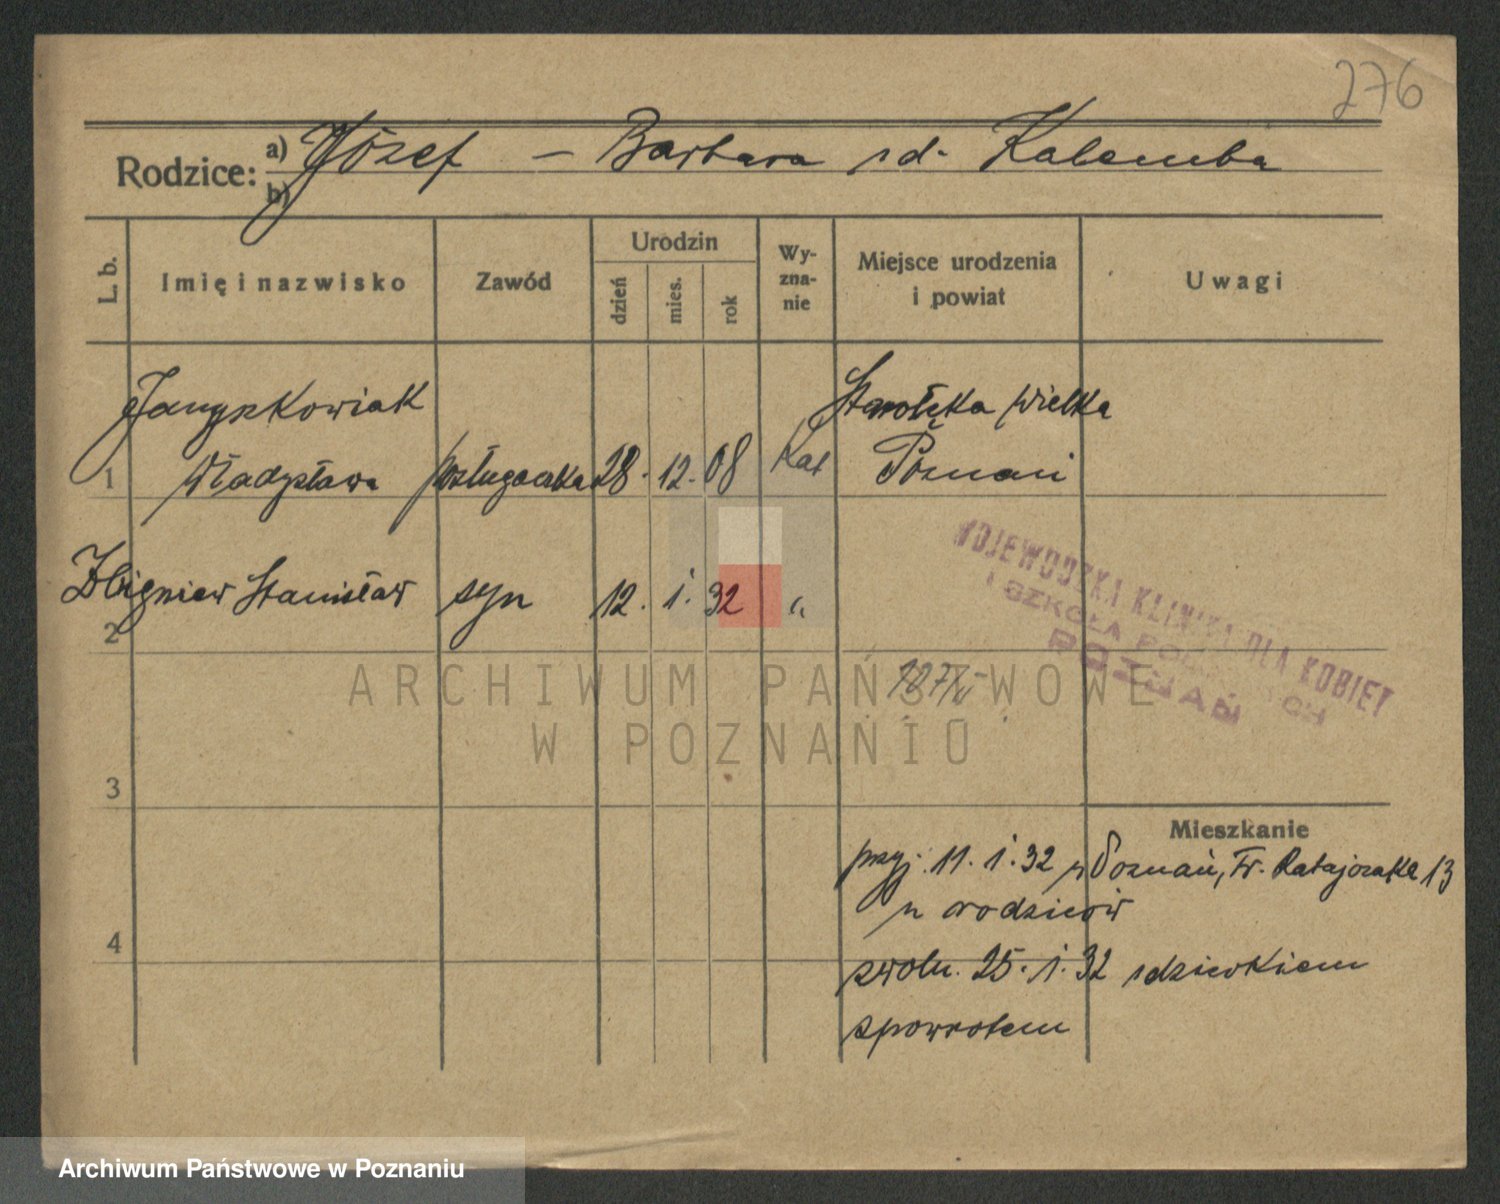 276
Rodzice: a) Józef – Barbara zd. Kalemba
b)
L. b. Imię i nazwisko Zawód Urodzin dzień mies. rok Wy-zna-nie Miejsce urodzenia i powiat Uwagi
Janyszkowiak Starołęka Wielka
1 Władysława posługaczka 28. 12. 08 Kat Poznań
2 Zbigniew Stanisław syn 12. 1. 32 "
WOJEWÓDZKA KLINIKA DLA KOBIET
I SZKOŁA
POZNAŃ
ARCHIWUM PAŃSTWOWE
W POZNANIU
3
Mieszkanie
przyj. 11. 1. 32 z Poznań, Fr. Ratajczaka 13
u rodziców
4
zwoln. 25. 1. 32 z dzieckiem
spowrotem
Archiwum Państwowe w Poznaniu